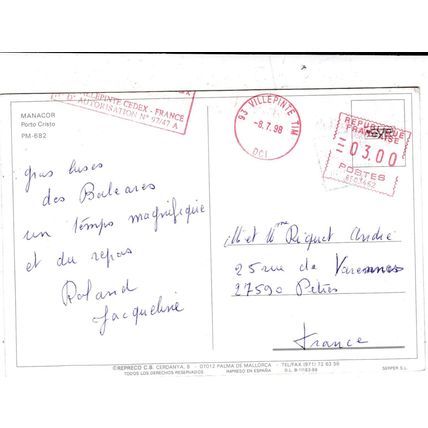 MANACOR
Porto Cristo
PM-882
VILLEPINTE CEDEX - FRANCE
AUTORISATION N° 97/47 A
93 VILLEPINTE TIM
-8.7.98
DCI
REPUBLIQUE
FRANCAISE
03,00
POSTES
gros bises
des Baleares
un temps magnifique
et du repos
Roland
Jacqueline
M et Mme Riquet André
25 rue de Varennes
27590 Pitres
France
©REPRECO C.B. CERDANYA, 8 - 07012 PALMA DE MALLORCA - TEL/FAX (971) 72 63 56
TODOS LOS DERECHOS RESERVADOS IMPRESO EN ESPAÑA SERPER S.L.